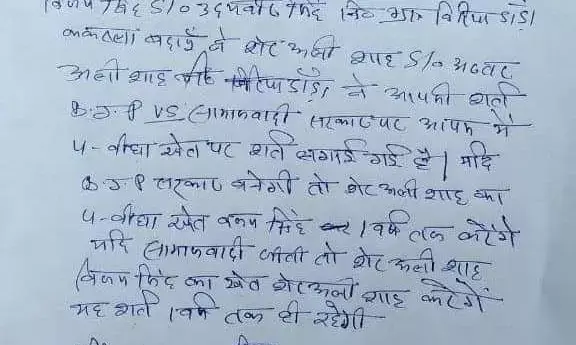 विजय सिंह S/o उदयवीर सिंह नि० ग्राम विरिया डांडा
ककराला बदायूँ व शेर अली शाह S/o अख्तर
अली शाह विरिया डांडा ने आपसी शर्त
B.J.P VS समाजवादी सरकार पर आपस में
4-बीघा खेत पर शर्त लगाई गई है। यदि
B.J.P सरकार बनेगी तो शेर अली शाह का
4-बीघा खेत विजय सिंह 1 वर्ष तक करेंगे
यदि समाजवादी जीती तो शेर अली शाह
विजय सिंह का खेत शेर अली शाह करेंगे
यह शर्त 1 वर्ष तक ही रहेगी